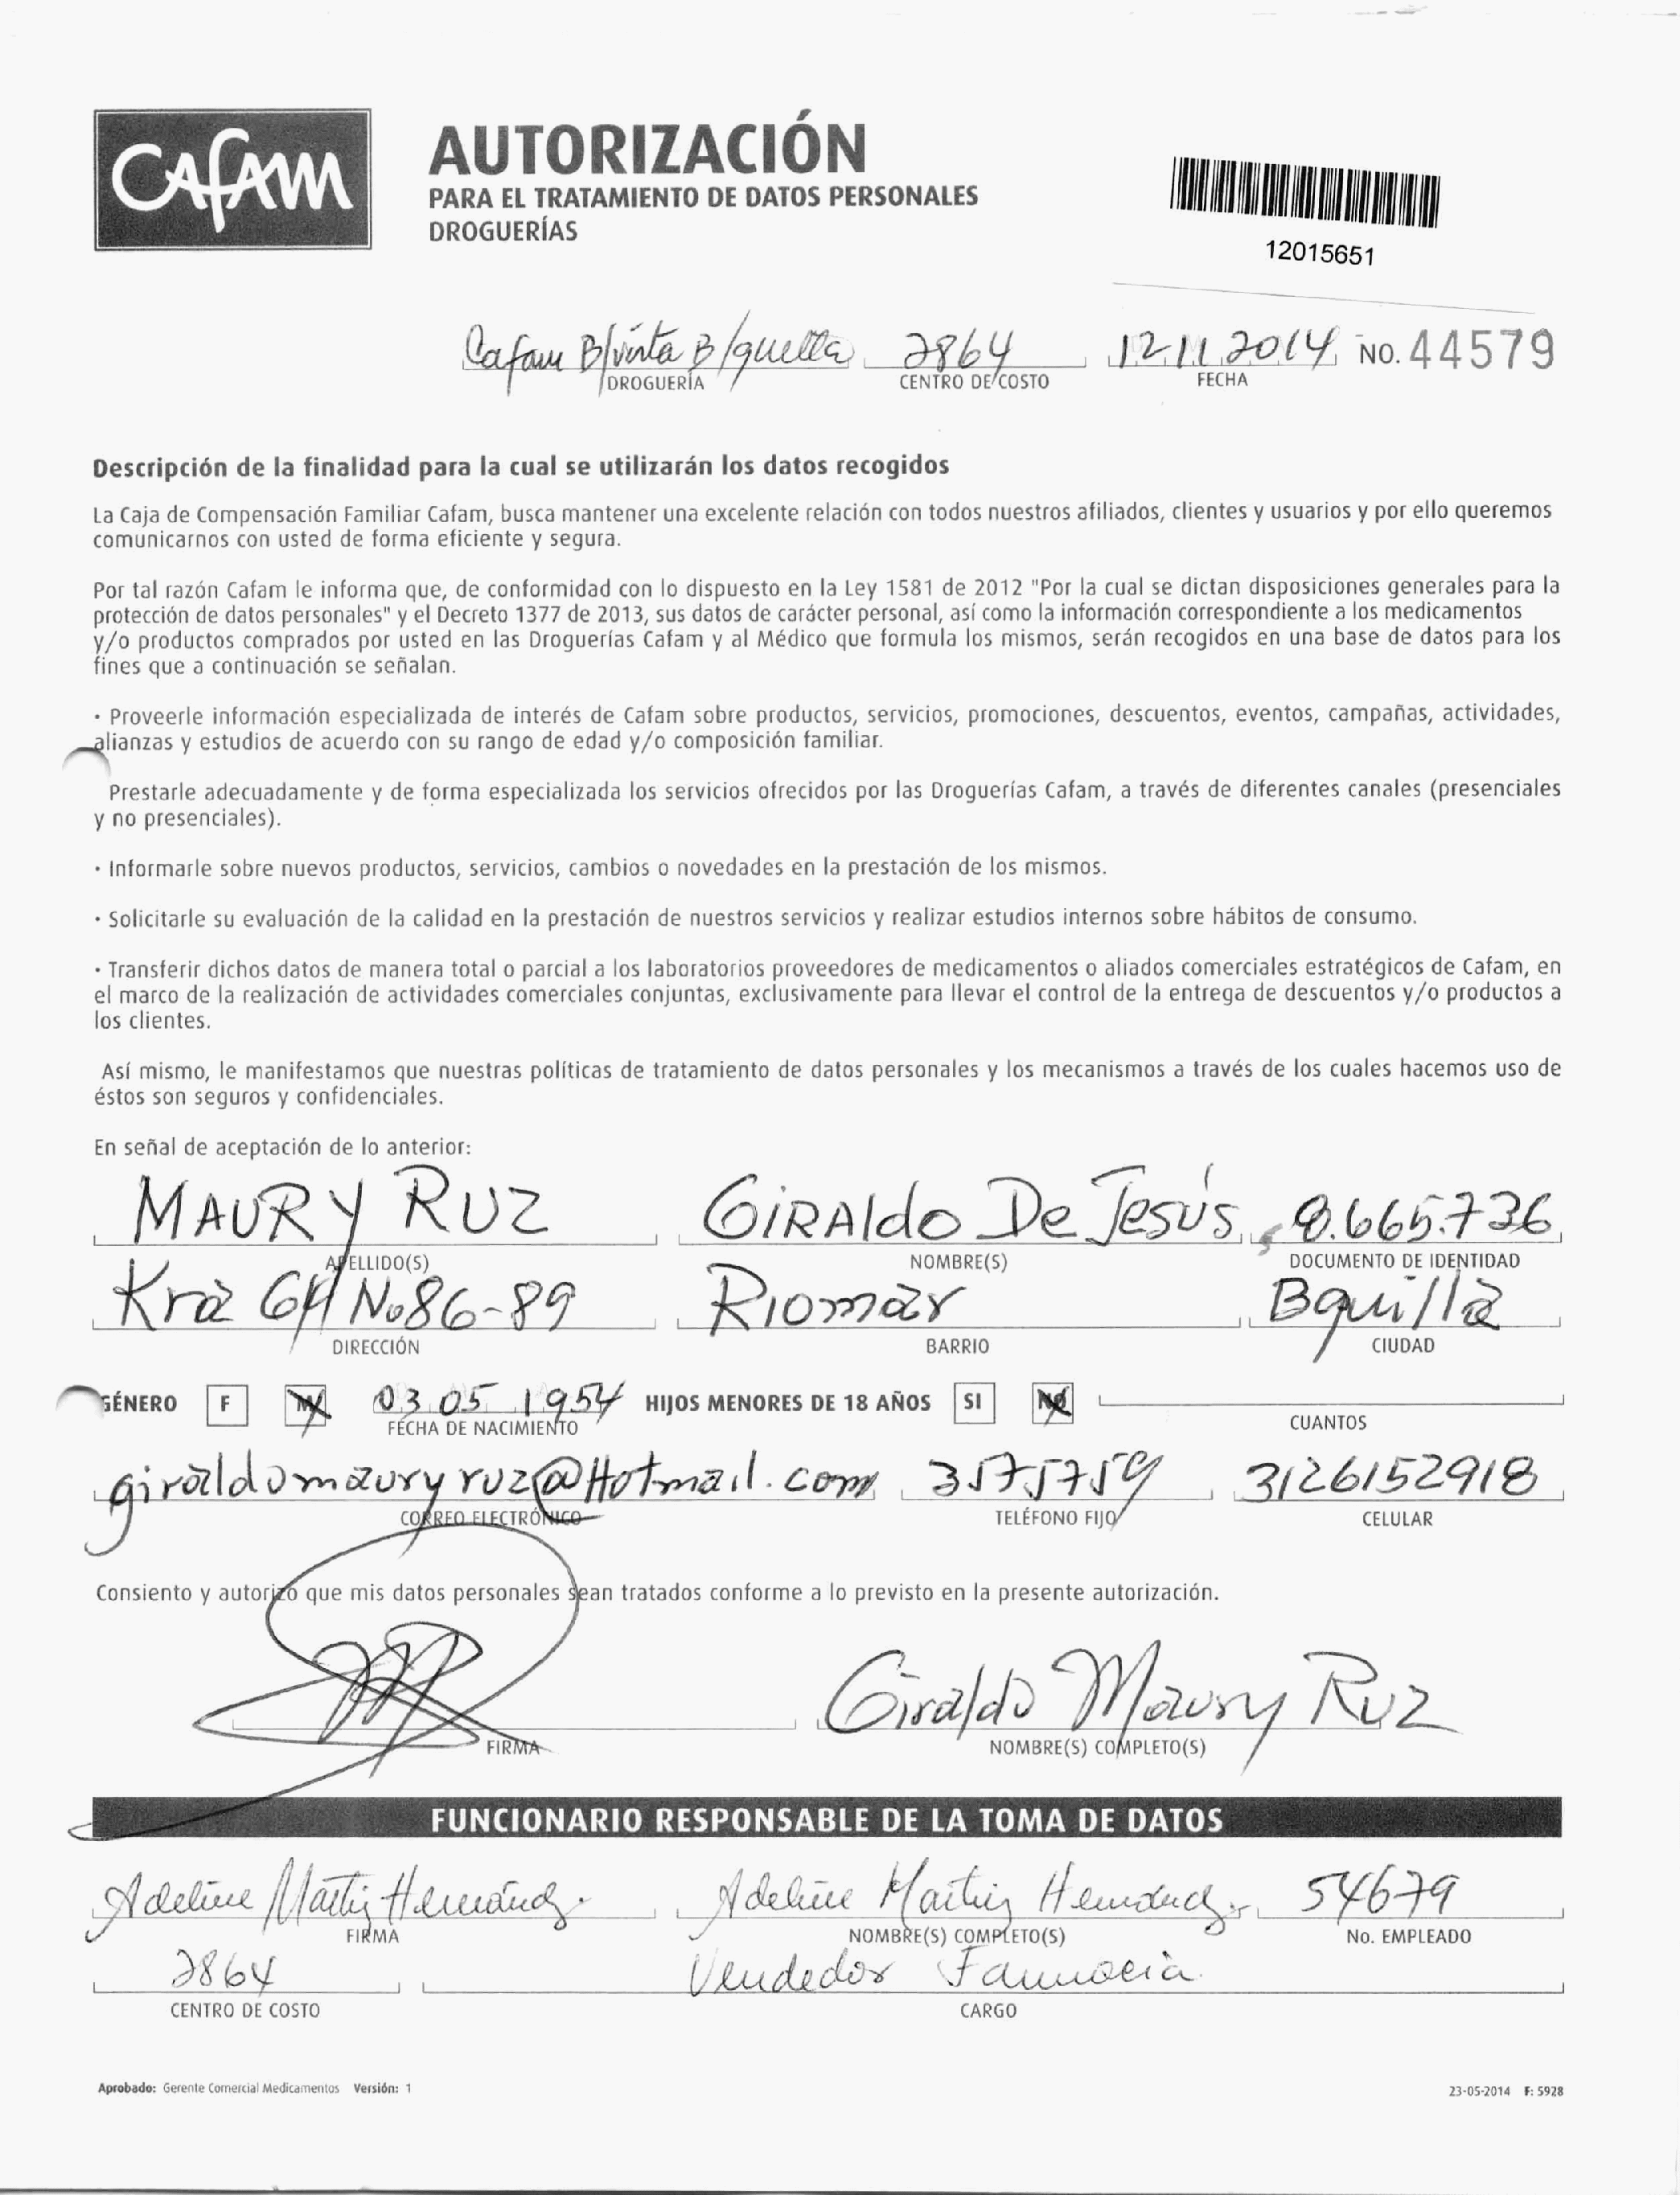 CAFAM
AUTORIZACIÓN
PARA EL TRATAMIENTO DE DATOS PERSONALES
DROGUERÍAS
12015651
Cafam B/vista B/quilla 2864 12.11.2014 NO. 44579
DROGUERÍA CENTRO DE COSTO FECHA
Descripción de la finalidad para la cual se utilizarán los datos recogidos
La Caja de Compensación Familiar Cafam, busca mantener una excelente relación con todos nuestros afiliados, clientes y usuarios y por ello queremos
comunicarnos con usted de forma eficiente y segura.
Por tal razón Cafam le informa que, de conformidad con lo dispuesto en la Ley 1581 de 2012 "Por la cual se dictan disposiciones generales para la
protección de datos personales" y el Decreto 1377 de 2013, sus datos de carácter personal, así como la información correspondiente a los medicamentos
y/o productos comprados por usted en las Droguerías Cafam y al Médico que formula los mismos, serán recogidos en una base de datos para los
fines que a continuación se señalan.
· Proveerle información especializada de interés de Cafam sobre productos, servicios, promociones, descuentos, eventos, campañas, actividades,
alianzas y estudios de acuerdo con su rango de edad y/o composición familiar.
Prestarle adecuadamente y de forma especializada los servicios ofrecidos por las Droguerías Cafam, a través de diferentes canales (presenciales
y no presenciales).
· Informarle sobre nuevos productos, servicios, cambios o novedades en la prestación de los mismos.
· Solicitarle su evaluación de la calidad en la prestación de nuestros servicios y realizar estudios internos sobre hábitos de consumo.
· Transferir dichos datos de manera total o parcial a los laboratorios proveedores de medicamentos o aliados comerciales estratégicos de Cafam, en
el marco de la realización de actividades comerciales conjuntas, exclusivamente para llevar el control de la entrega de descuentos y/o productos a
los clientes.
Así mismo, le manifestamos que nuestras políticas de tratamiento de datos personales y los mecanismos a través de los cuales hacemos uso de
éstos son seguros y confidenciales.
En señal de aceptación de lo anterior:
MAURY RUZ GIRAldo De Jesús 8.665.736
APELLIDO(S) NOMBRE(S) DOCUMENTO DE IDENTIDAD
Kra 64 No 86-89 Riomar Bquilla
DIRECCIÓN BARRIO CIUDAD
GÉNERO F M 03.05.1954 HIJOS MENORES DE 18 AÑOS SI NO
FECHA DE NACIMIENTO CUANTOS
giraldomauryruz@Hotmail.com 3575759 3126152918
CORREO ELECTRÓNICO TELÉFONO FIJO CELULAR
Consiento y autorizo que mis datos personales sean tratados conforme a lo previsto en la presente autorización.
Giraldo Maury Ruz
FIRMA NOMBRE(S) COMPLETO(S)
FUNCIONARIO RESPONSABLE DE LA TOMA DE DATOS
Hernández Hernández 54679
FIRMA NOMBRE(S) COMPLETO(S) No. EMPLEADO
2864 Vendedor Farmacia
CENTRO DE COSTO CARGO
Aprobado: Gerente Comercial Medicamentos Versión: 1 23-05-2014 F: 5928